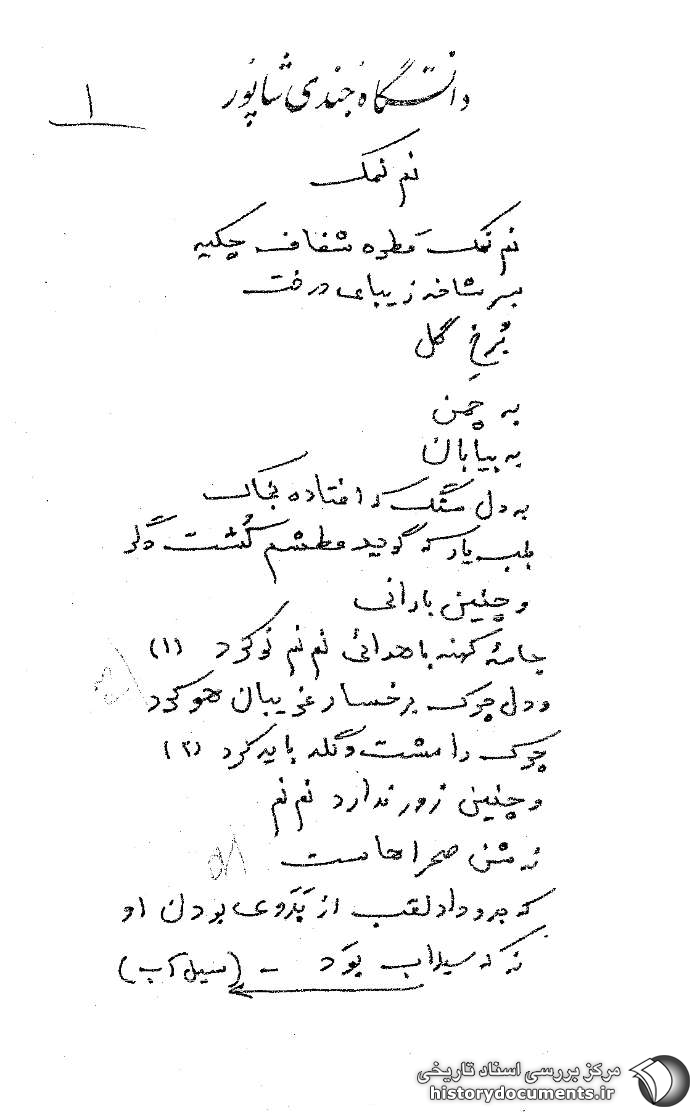 دانشگاه جندی شاپور
۱
نم نمک
نم نمک قطره شفاف چکیه
بسر شاخه زیبای درخت
بُرخِ گل
به چمن
به بیابان
به دل سنگ که افتاده بخاک
بلب یار که گوید عطشم کُشت دگر
و چنین بارانی
جامهٔ کهنه با هدائی نم نم نو کرد (۱)
و دل چرک برخسار غریبان هو کرد
چرک را مشت و گله باید کرد (۲)
و چنین زور ندارد نم نم
نه شن صحراهاست
که بدو داد لقب از بَدَوی بودن او
نه که سیلاب بوَد - (سیل آب)
مرکز بررسی اسناد تاریخی
historydocuments.ir